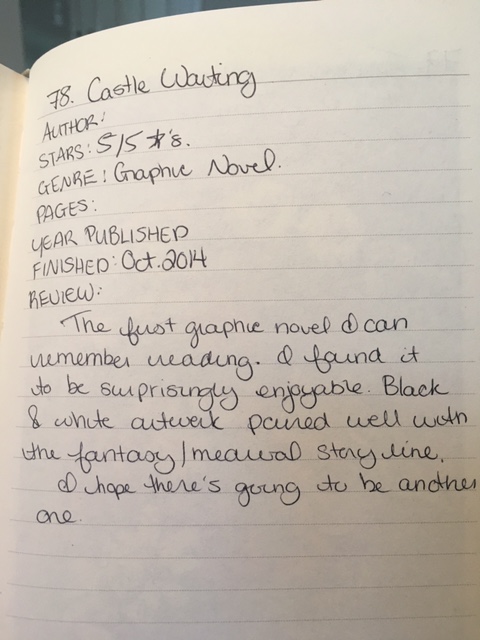 78. Castle Waiting
AUTHOR:
STARS: 5/5 *'s.
GENRE: Graphic Novel.
PAGES:
YEAR PUBLISHED
FINISHED: Oct. 2014
REVIEW:
The first graphic novel I can
remember reading. I found it
to be surprisingly enjoyable. Black
& white artwork paired well with
the fantasy/medieval story line.
I hope there's going to be another
one.